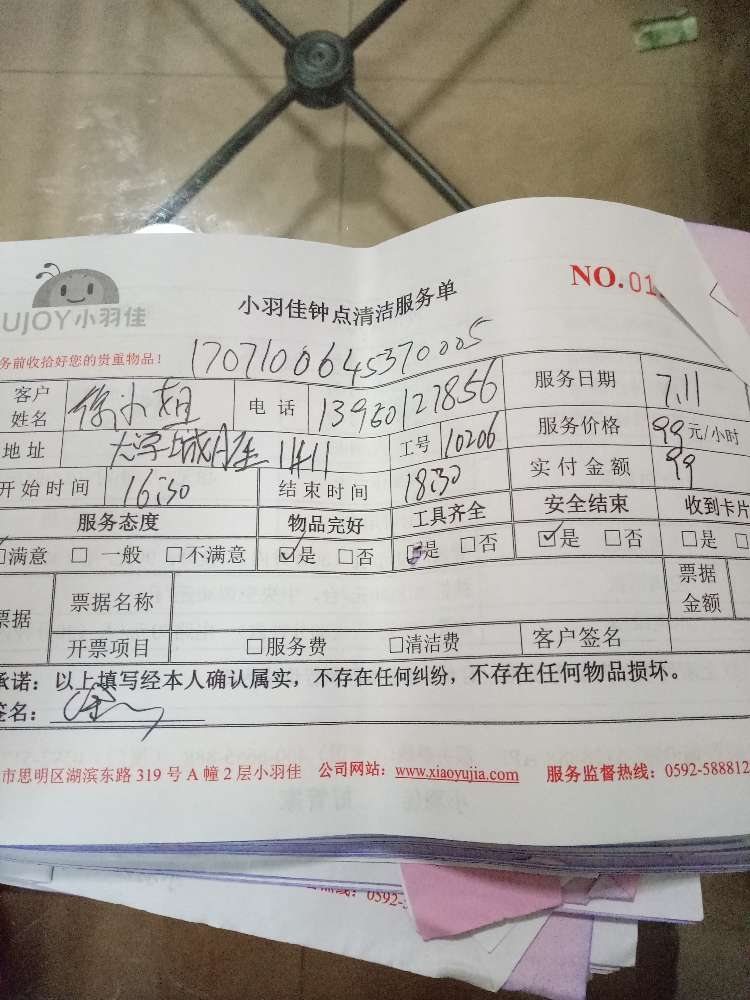 UJOY小羽佳
小羽佳钟点清洁服务单
NO.01
务前收拾好您的贵重物品！
1707100645370005
客户姓名 徐小姐 电话 13960127856 服务日期 7.11
地址 大学城 1411 工号 10206 服务价格 99元/小时
开始时间 16:30 结束时间 18:30 实付金额 99
服务态度 物品完好 工具齐全 安全结束 收到卡片
☐满意 ☐一般 ☐不满意 ☑是 ☐否 ☑是 ☐否 ☑是 ☐否 ☐是
票据 票据名称 票据金额
开票项目 ☐服务费 ☐清洁费 客户签名
承诺：以上填写经本人确认属实，不存在任何纠纷，不存在任何物品损坏。
签名：
市思明区湖滨东路319号A幢2层小羽佳 公司网站：www.xiaoyujia.com 服务监督热线：0592-588812
0592-